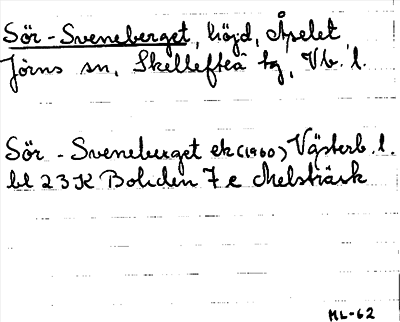 Sör-Sveneberget, höjd, Åpelet
Jörns sn, Skellefteå tg, Vb. l.
Sör-Sveneberget ek (1960) Västerb. l.
bl 23K Boliden 7 e Melsträsk
ML-62